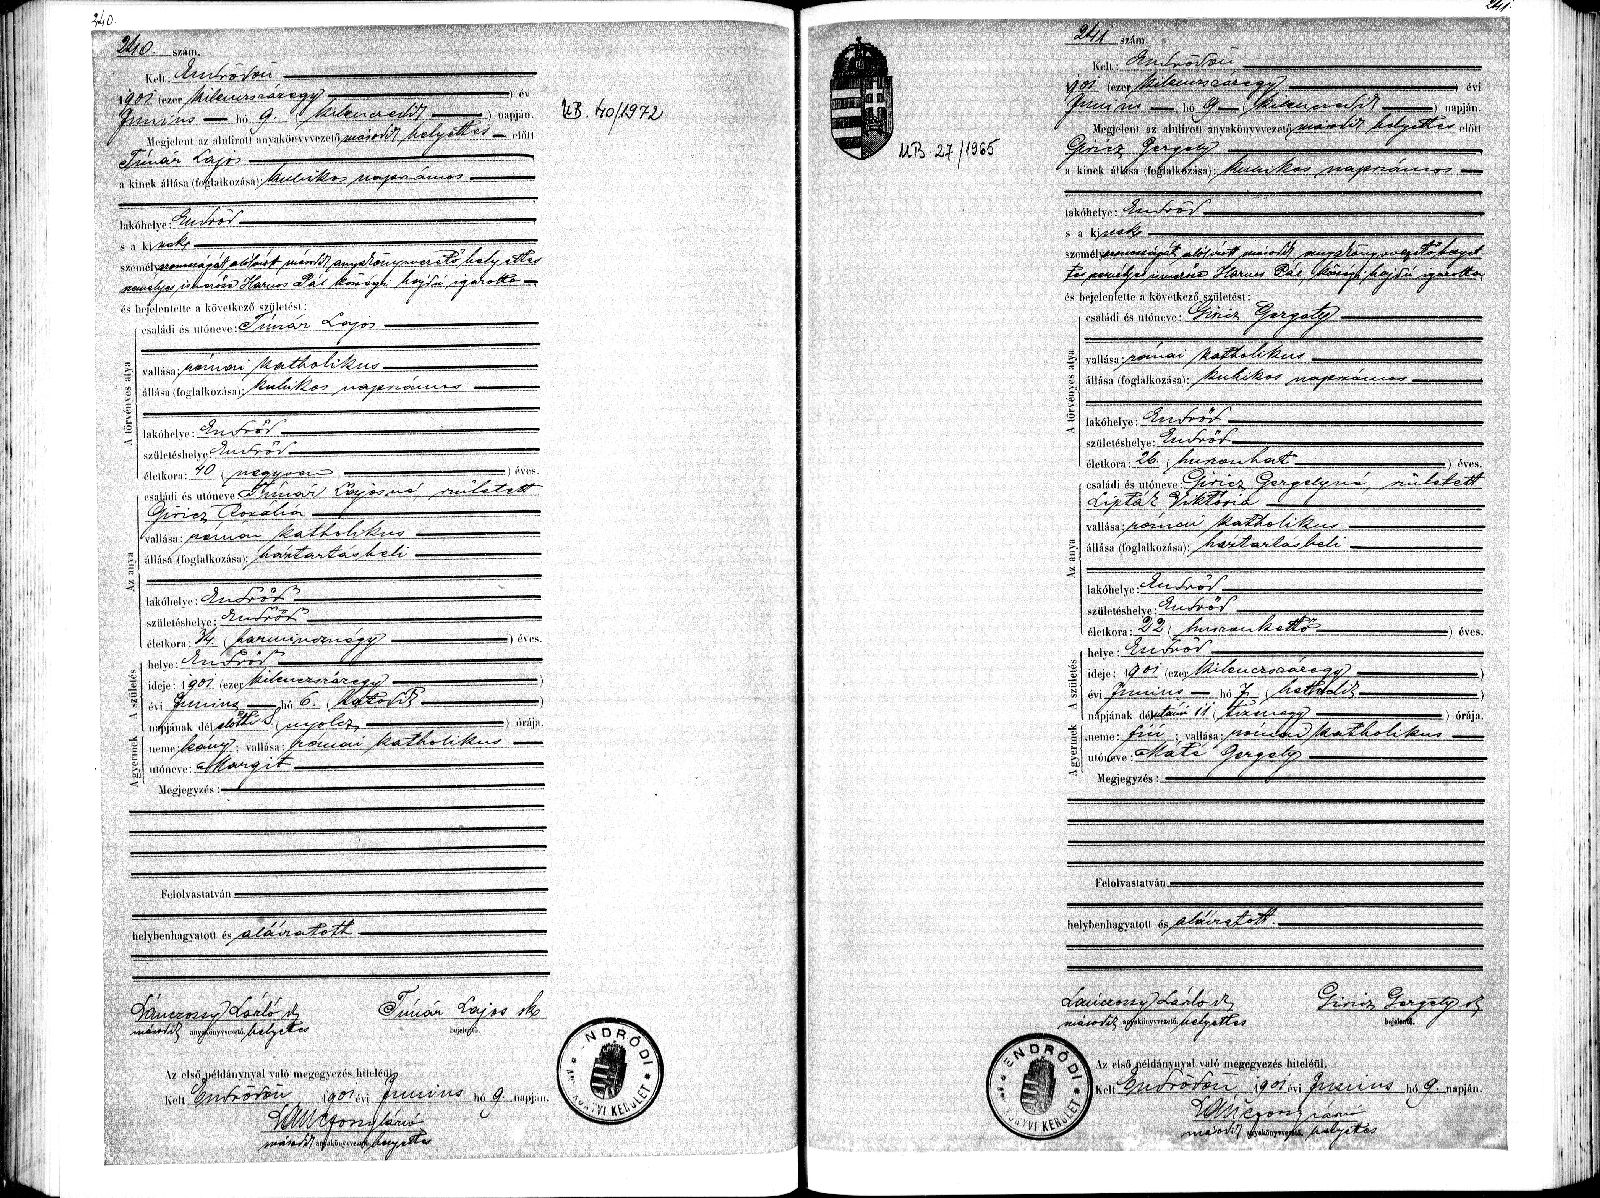 240.
240. szám.
Kelt: Endrődön
1901 (ezer kilenczszázegy) év
Június hó 9. (kilenczedik) napján.
Megjelent az alulirott anyakönyvvezető második helyettes előtt
Tímár Lajos
a kinek állása (foglalkozása): kubikos napszámos
lakóhelye: Endrőd
s a ki
személyazonosságát alólírott második anyakönyvvezető helyettes
személyes ismerőse Harnos Pál községi hajdú igazolta
és bejelentette a következő születést:
A törvényes atya
családi és utóneve: Tímár Lajos
vallása: római katholikus
állása (foglalkozása): kubikos napszámos
lakóhelye: Endrőd
születéshelye: Endrőd
életkora: 40 (negyven) éves.
Az anya
családi és utóneve: Tímár Lajosné született
Giricz Rozália
vallása: római katholikus
állása (foglalkozása): háztartásbeli
lakóhelye: Endrőd
születéshelye: Endrőd
életkora: 34 (harmincznégy) éves.
A születés
helye: Endrőd
ideje: 1901 (ezer kilenczszázegy)
évi Június hó 6. (hatodik)
napjának dél előtti 8 (nyolcz) órája.
A gyermek
neme: leány; vallása: római katholikus
utóneve: Margit
Megjegyzés:
Felolvastatván
helybenhagyatott és aláíratott
Lánczossy László
második anyakönyvvezető helyettes
Tímár Lajos sk
bejelentő.
Az első példánynyal való megegyezés hiteléül.
Kelt Endrődön 1901 évi Június hó 9. napján.
második anyakönyvvezető helyettes
UB. 40/1972
ENDRŐDI
KERÜLET
241.
241 szám.
Kelt: Endrődön
1901 (ezer kilenczszázegy) évi
Június hó 9 (kilenczedik) napján.
Megjelent az alulirott anyakönyvvezető második helyettes előtt
Giricz Gergely
a kinek állása (foglalkozása): kubikos napszámos
lakóhelye: Endrőd
s a ki
személyazonosságát alólírott második anyakönyvvezető helyet
tes személyes ismerőse Harnos Pál községi hajdú igazolta
és bejelentette a következő születést:
A törvényes atya
családi és utóneve: Giricz Gergely
vallása: római katholikus
állása (foglalkozása): kubikos napszámos
lakóhelye: Endrőd
születéshelye: Endrőd
életkora: 26 (huszonhat) éves.
Az anya
családi és utóneve: Giricz Gergelyné, született
Lipták Viktória
vallása: római katholikus
állása (foglalkozása): háztartásbeli
lakóhelye: Endrőd
születéshelye: Endrőd
életkora: 22 (huszonkettő) éves.
A születés
helye: Endrőd
ideje: 1901 (ezer kilenczszázegy)
évi Június hó 7. (hetedik)
napjának délutáni 11 (tizenegy) órája.
A gyermek
neme: fiú; vallása: római katholikus
utóneve: Máté Gergely
Megjegyzés:
Felolvastatván
helybenhagyatott és aláíratott.
Lánczossy László
második anyakönyvvezető helyettes
Giricz Gergely
bejelentő.
Az első példánynyal való megegyezés hiteléül.
Kelt Endrődön 1901 évi Június hó 9. napján.
második anyakönyvvezető helyettes
UB 27/1965
ENDRŐDI
KERÜLET